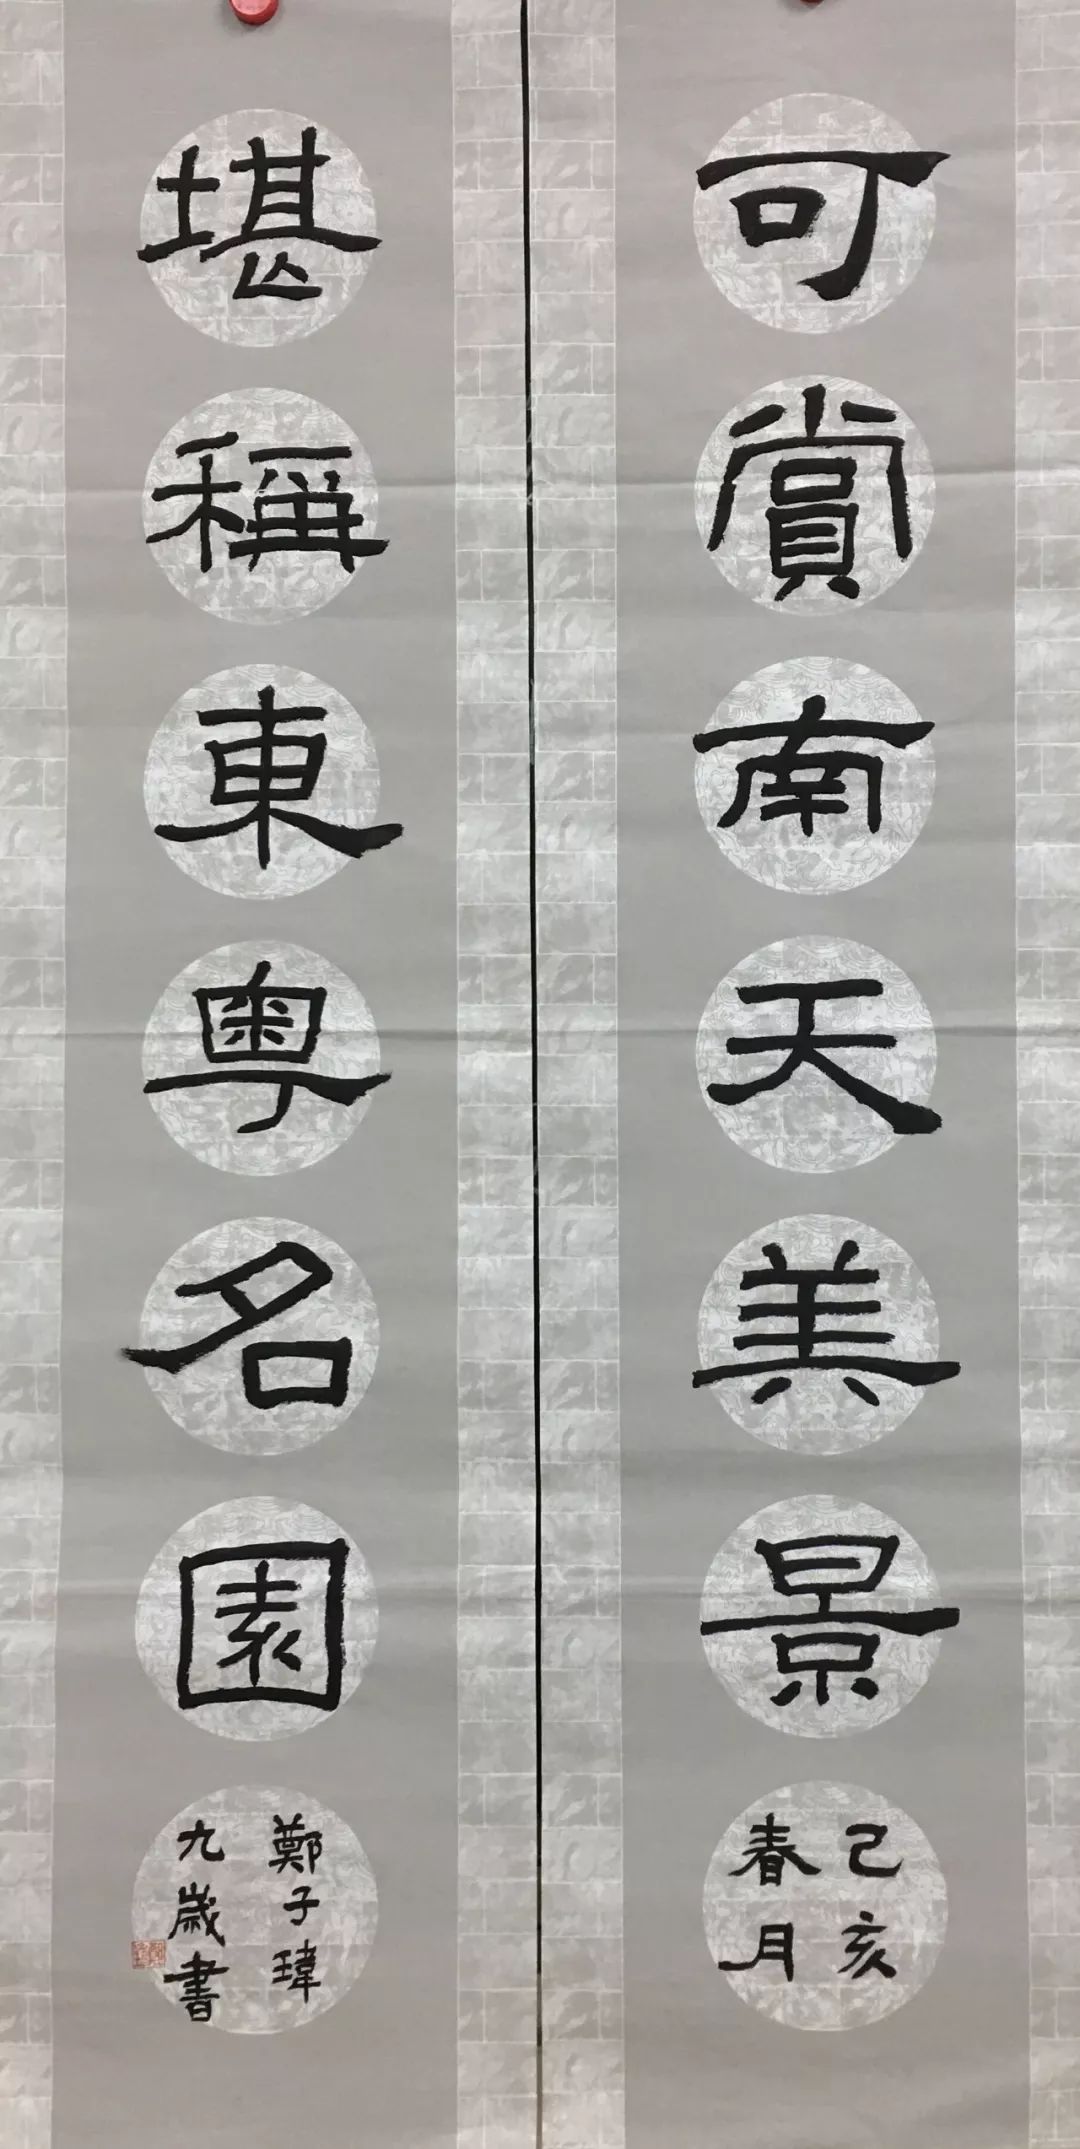 可賞南天美景
己亥
春月
堪稱東粤名園
鄭子瑋
九歲書